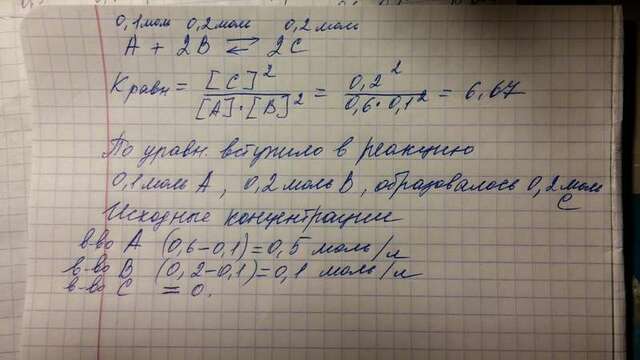 0,1 моль 0,2 моль 0,2 моль
A + 2B ⇄ 2C
K равн = [C]² / [A]·[B]² = 0,2² / 0,6·0,1² = 6,67
По уравн. вступило в реакцию
0,1 моль A, 0,2 моль B, образовалось 0,2 моль
C
Исходные концентрации
в-во A (0,6-0,1)=0,5 моль/л
в-во B (0,2-0,1)=0,1 моль/л
в-во C = 0.